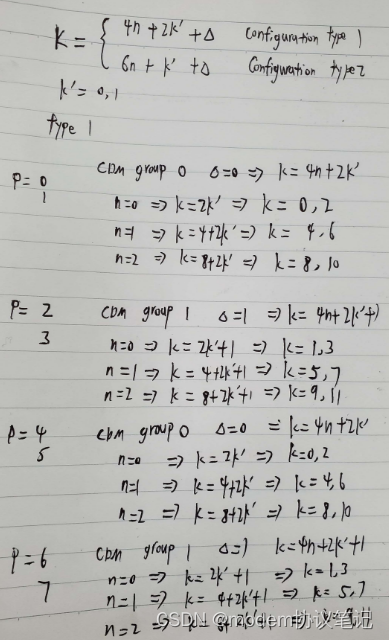 K = { 4n + 2k' + Δ Configuration type 1
6n + k' + Δ Configuration type 2
k' = 0, 1
type 1
P = 0 CDM group 0 Δ=0 => k = 4n + 2k'
1 n=0 => k = 2k' => k = 0, 2
n=1 => k = 4+2k' => k = 4, 6
n=2 => k = 8+2k' => k = 8, 10
P = 2 CDM group 1 Δ=1 => k = 4n + 2k'+1
3 n=0 => k = 2k'+1 => k = 1, 3
n=1 => k = 4+2k'+1 => k = 5, 7
n=2 => k = 8+2k'+1 => k = 9, 11
P = 4 CDM group 0 Δ=0 => k = 4n + 2k'
5 n=0 => k = 2k' => k = 0, 2
n=1 => k = 4+2k' => k = 4, 6
n=2 => k = 8+2k' => k = 8, 10
P = 6 CDM group 1 Δ=1 k = 4n + 2k'+1
7 n=0 => k = 2k'+1 => k = 1, 3
n=1 => k = 4+2k'+1 => k = 5, 7
n=2 => k = 8+2k'+1
CSDN @modem协议笔记